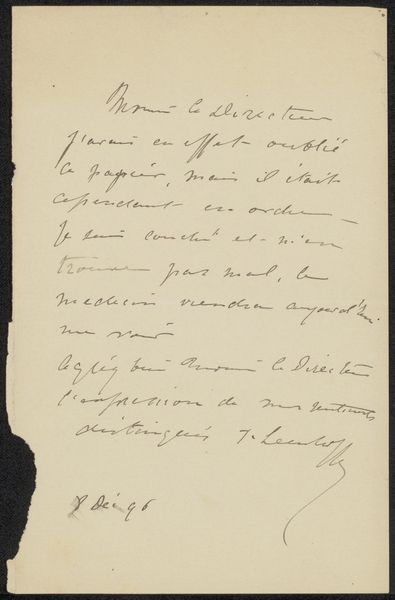 Monsieur le Directeur
j'avais en effet oublié
ce papier, mais il était
cependant en ordre —
Je suis couché et m'en
trouve pas mal, le
medecin viendra aujourd'hui
me voir
Monsieur le Directeur
l'expression de mes sentiments
distingués J. Leenhoff
8 Déc 96